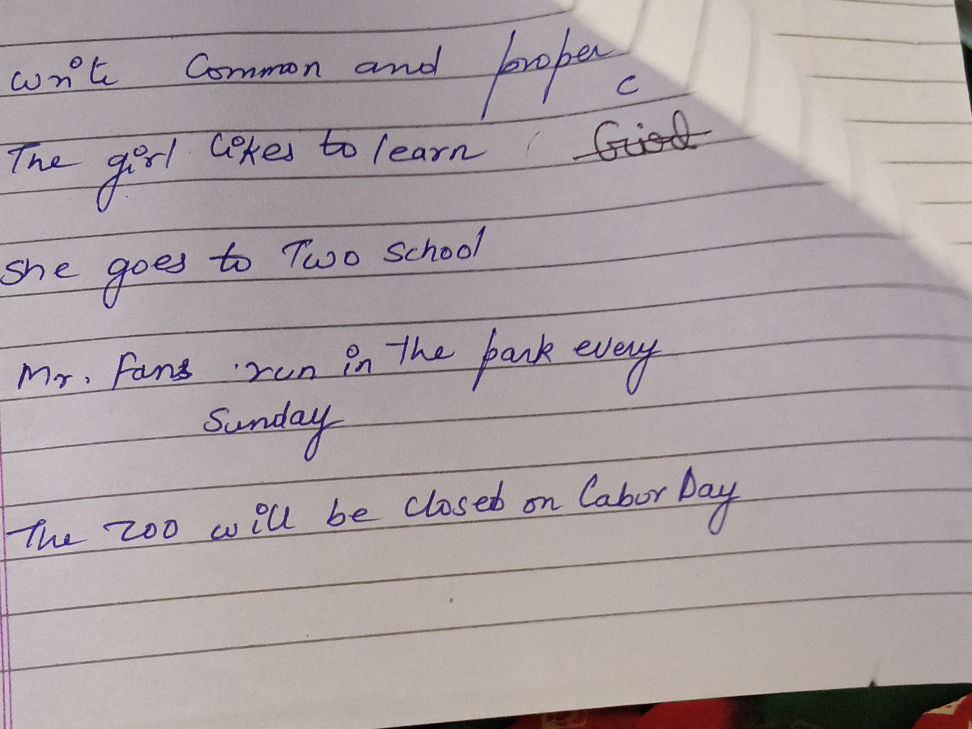 write Common and proper
c
The girl likes to learn
She goes to Two School
Mr. Fans run in the park every
Sunday
The zoo will be closed on Labor Day